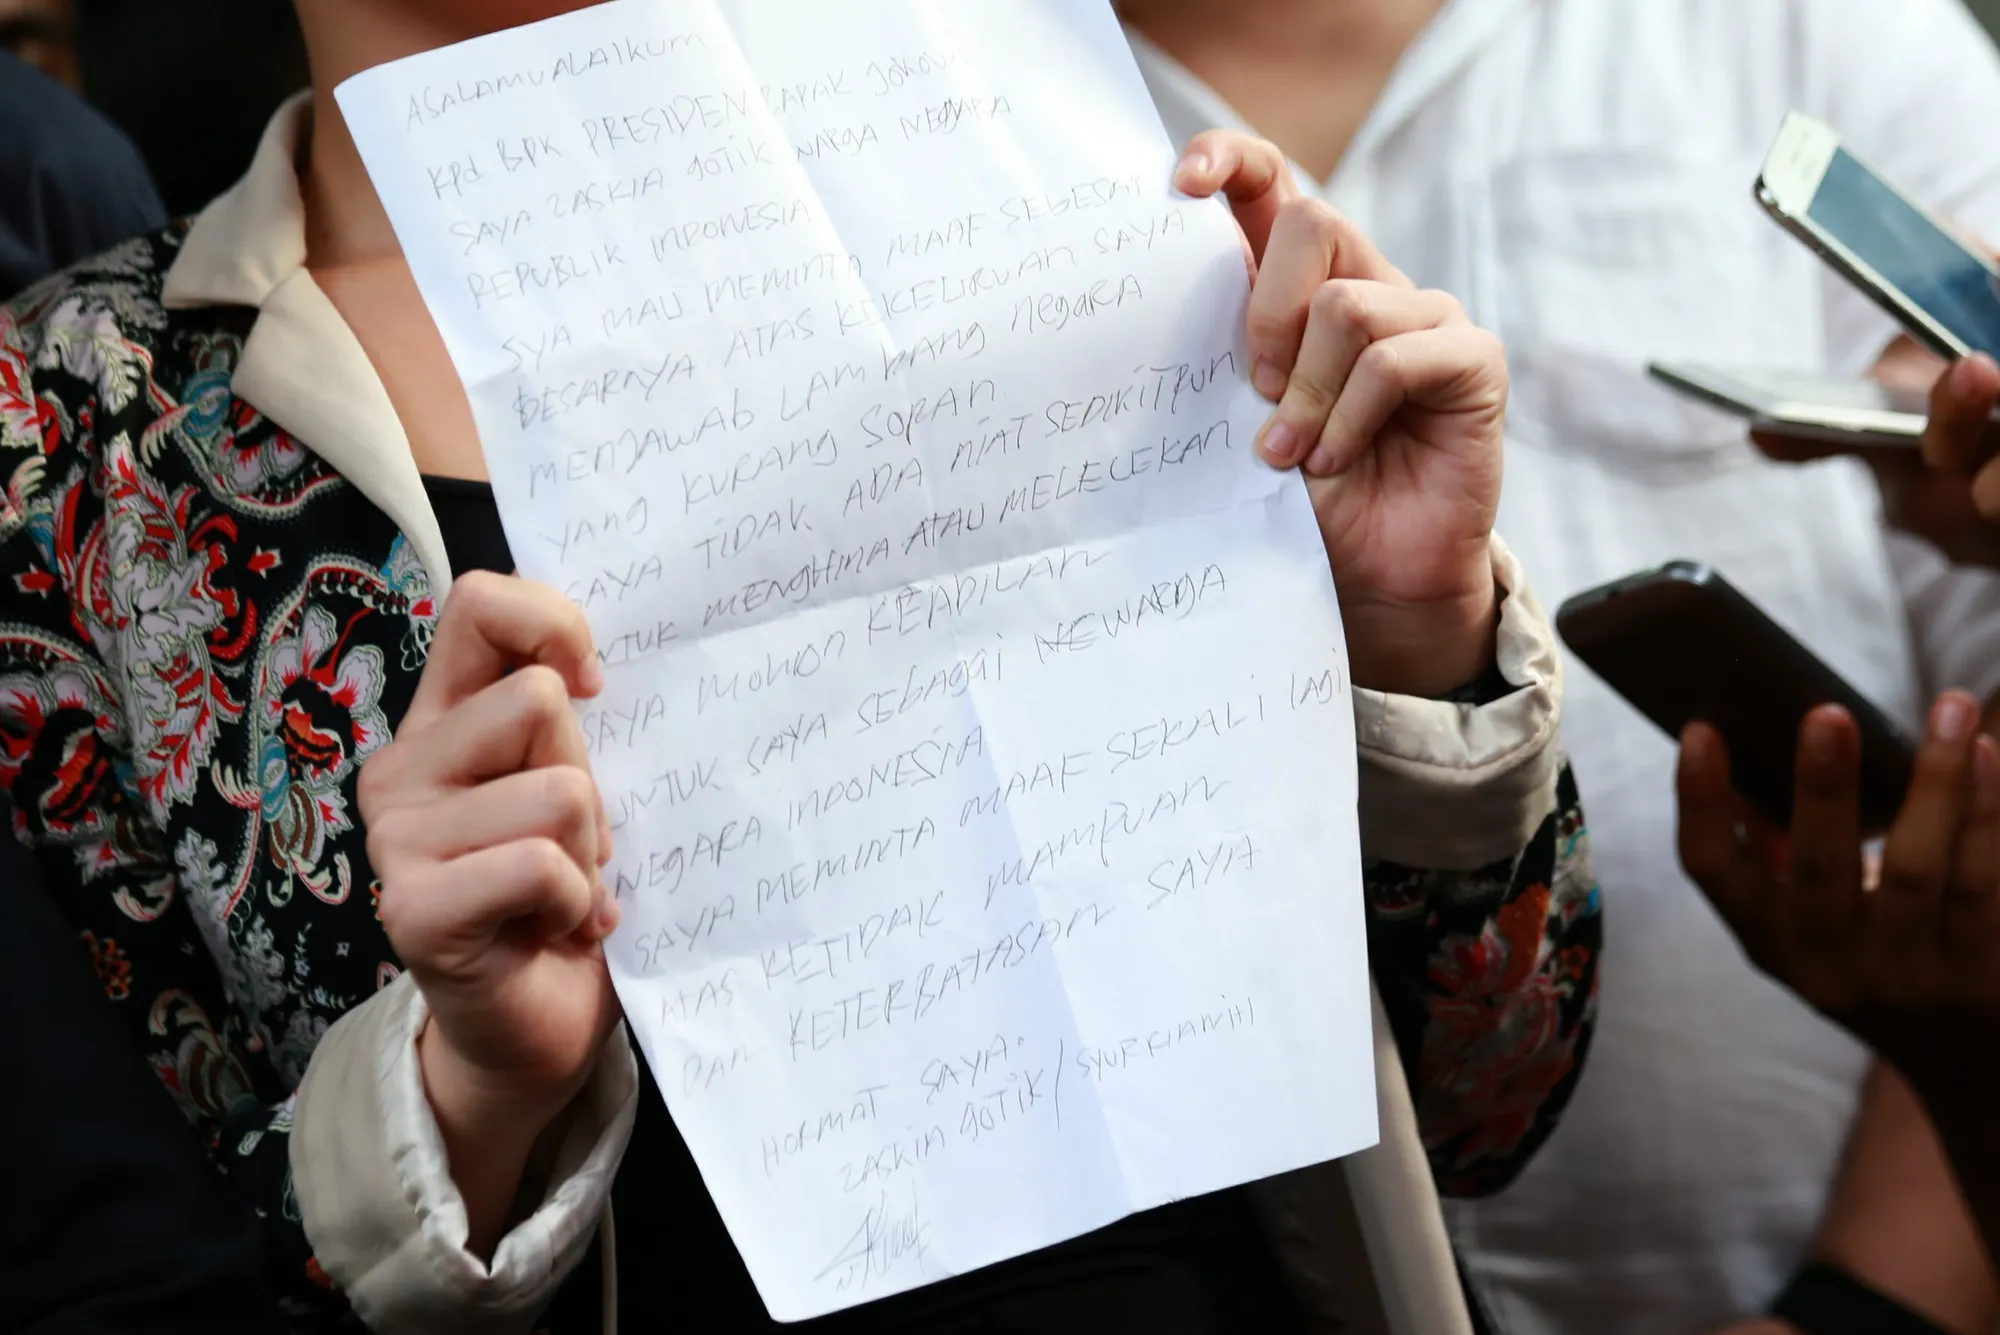 ASALAMUALAIKUM
Kpd BPK PRESIDEN BAPAK JOKOWI
SAYA ZASKIA gOTIK WARGA NEGARA
REPUBLIK INDONESIA
SYA MAU MEMINTA MAAF SEBESAR
BESARNYA ATAS KEKELIRUAN SAYA
MENJAWAb LAMbANg NEgARA
YANg KURANg SOPAN.
SAYA TIDAK ADA NIAT SEDIKITPUN
UNTUK MENGHINA ATAU MELECEKAN
SAYA MOHON KEADILAN
UNTUK SAYA SEbAgAi WARgA
NEgARA INDONESIA
SAYA MEMINTA MAAF SEKALI lAgi
ATAS KETIDAK MAMPUAN
DAN KETERBATASAN SAYA
HORMAT SAYA.
ZASKIA gOTIK /